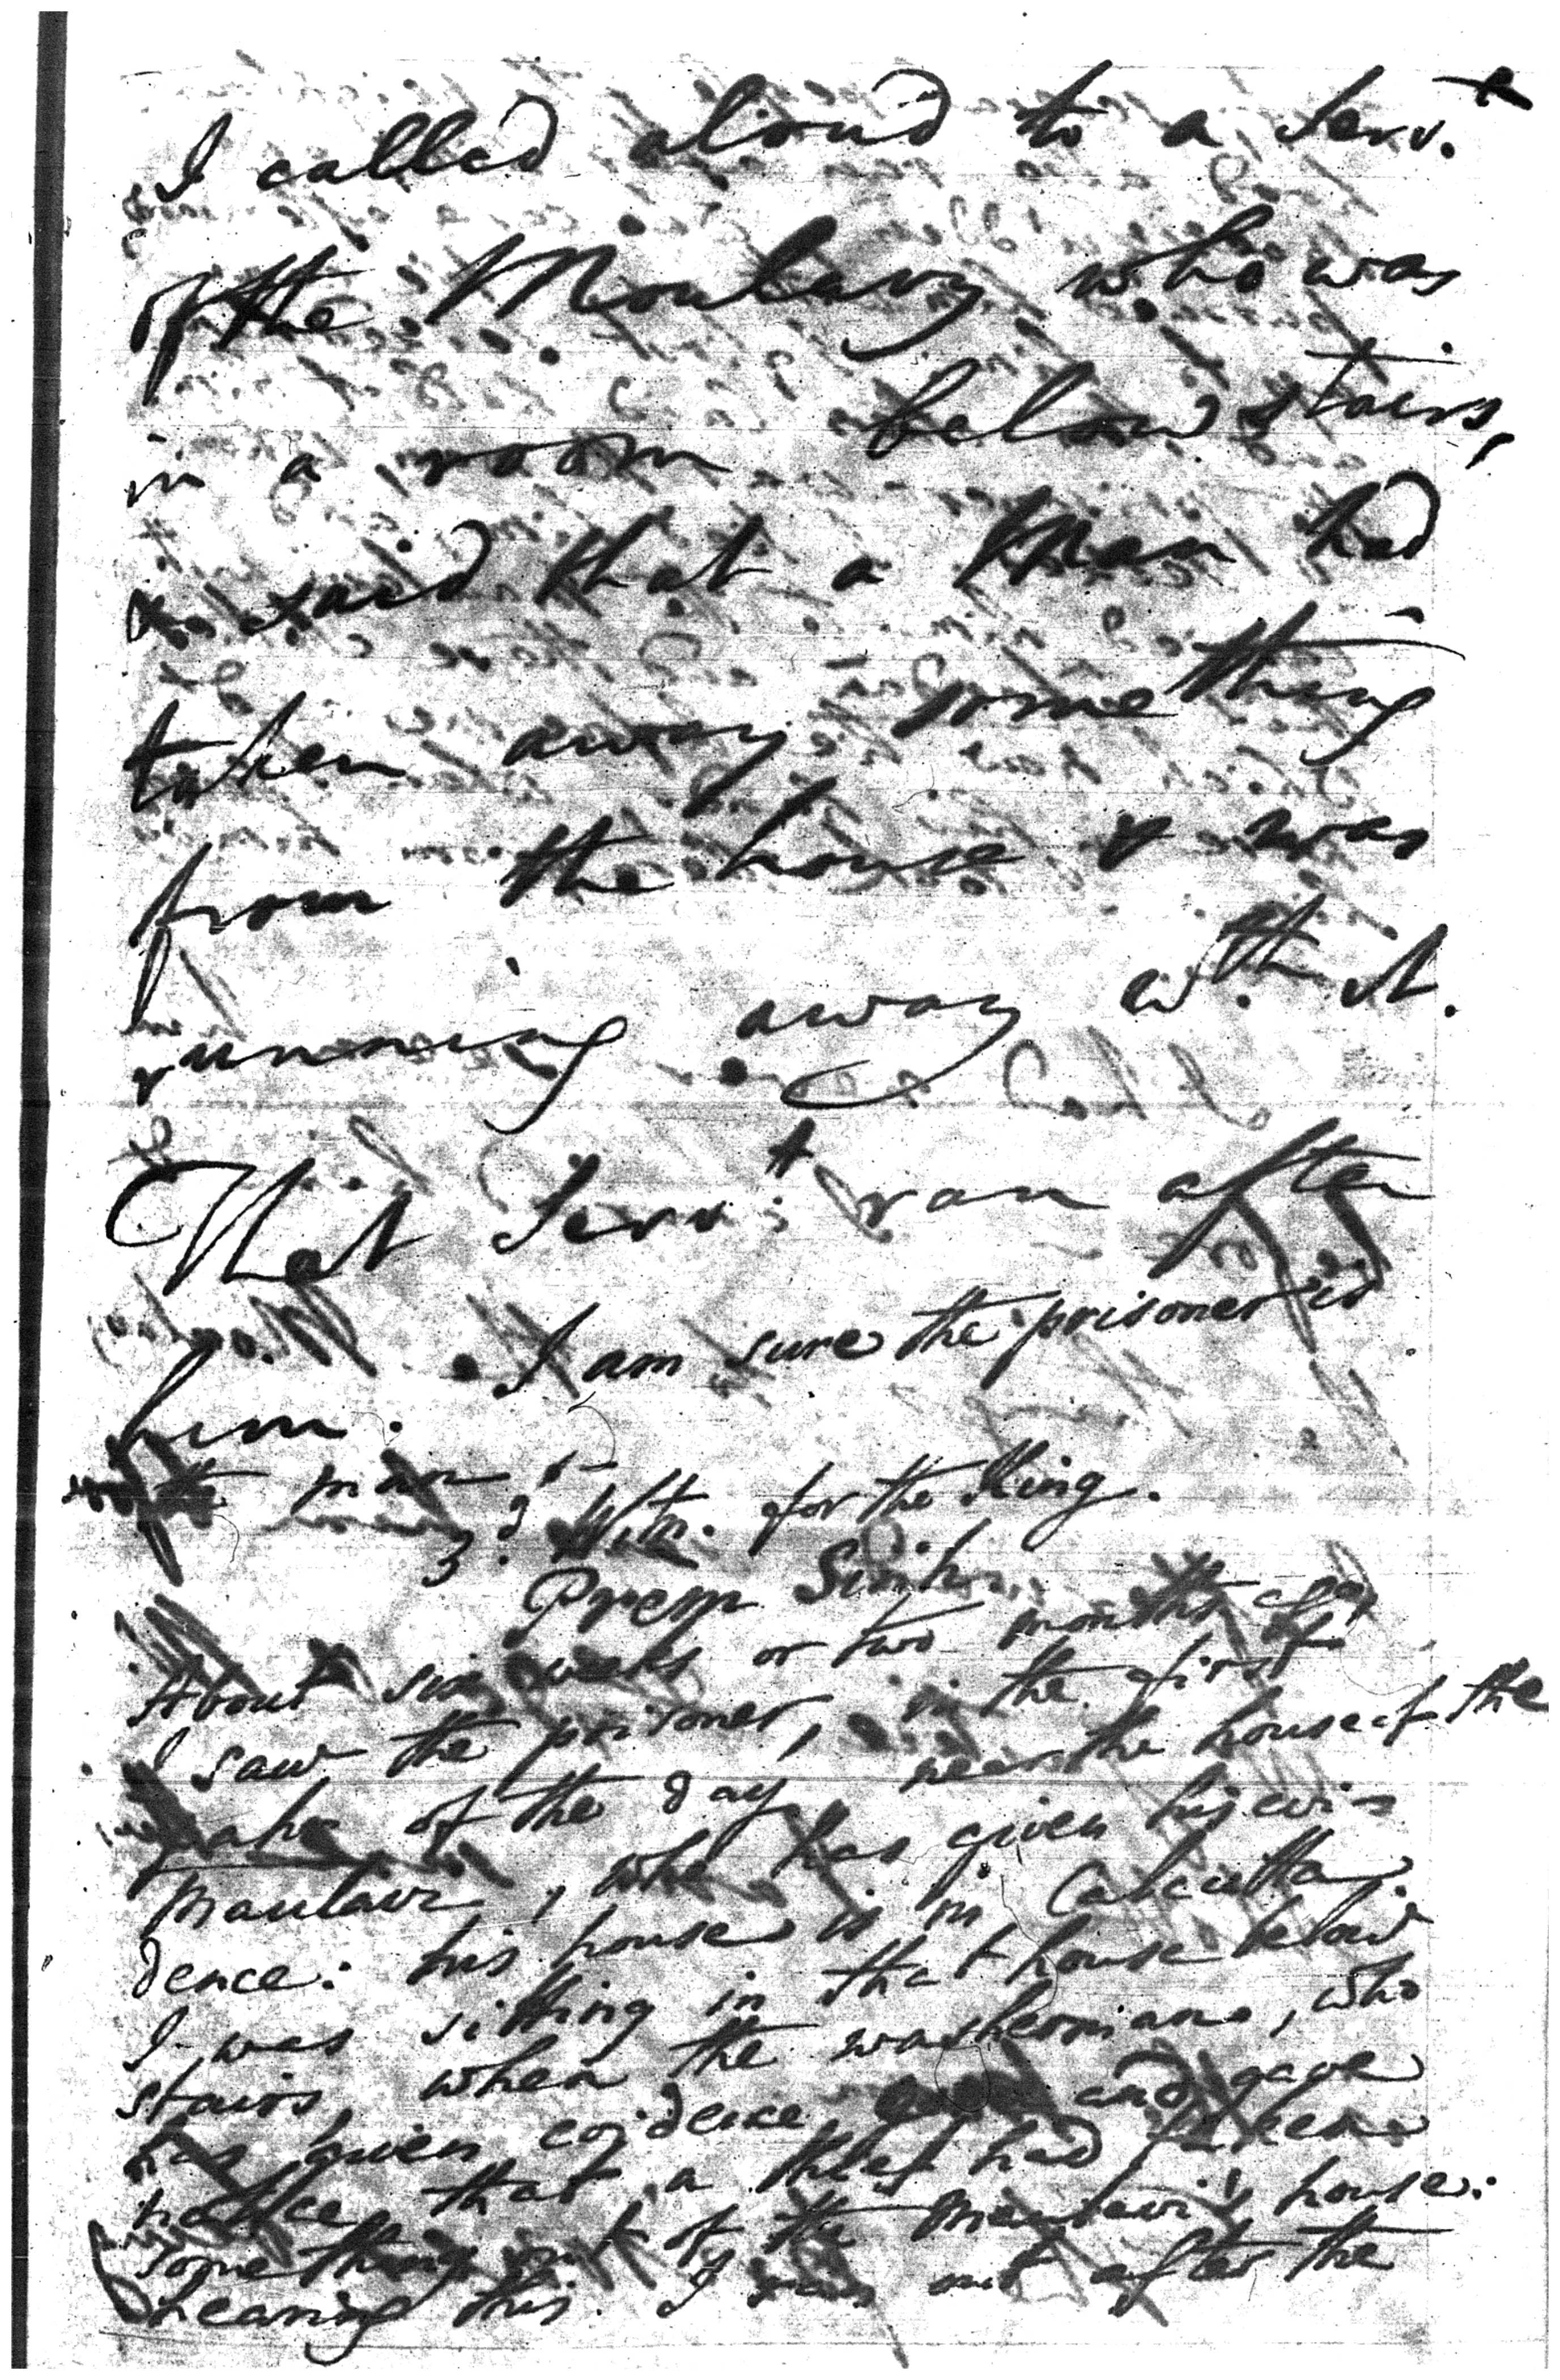 I called aloud to a Serv.t
of the Moulavy who was
in a room below stairs,
& said that a Man had
taken away something
from the house & was
running away wth it.
That Serv.t ran after
him. I am sure the prisoner is
the man.
3.d Witn. for the King.
Prem Sinh.
About six weeks or two months ago
I saw the prisoner, in the first
pahr of the day, near the house of the
Maulavi, who has given his evi-
dence: his house is in Calcutta.
I was sitting in that house below
stairs, when the washerman, who
has given evidence, and gave
notice that a thief had taken
something out of the Maulavi's house:
hearing this I ran out after the